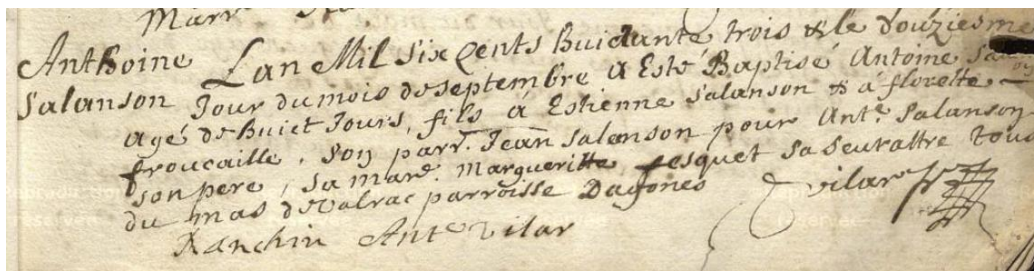 Anthoine Lan Mil six Cents huictante trois & le douziesme
Salanson Jour du mois de septembre a Esté Baptisé Antoine
agé de huict Jours, fils á Estienne Salanson & á florette
froucaille, son parr. Jean Salanson pour Ant.e Salanson
son pere, sa mar.e Margueritte fesquet sa seurattre tous
du mas de Valrac parroisse Dagones Vilar
Ranchin Ant.e Vilar